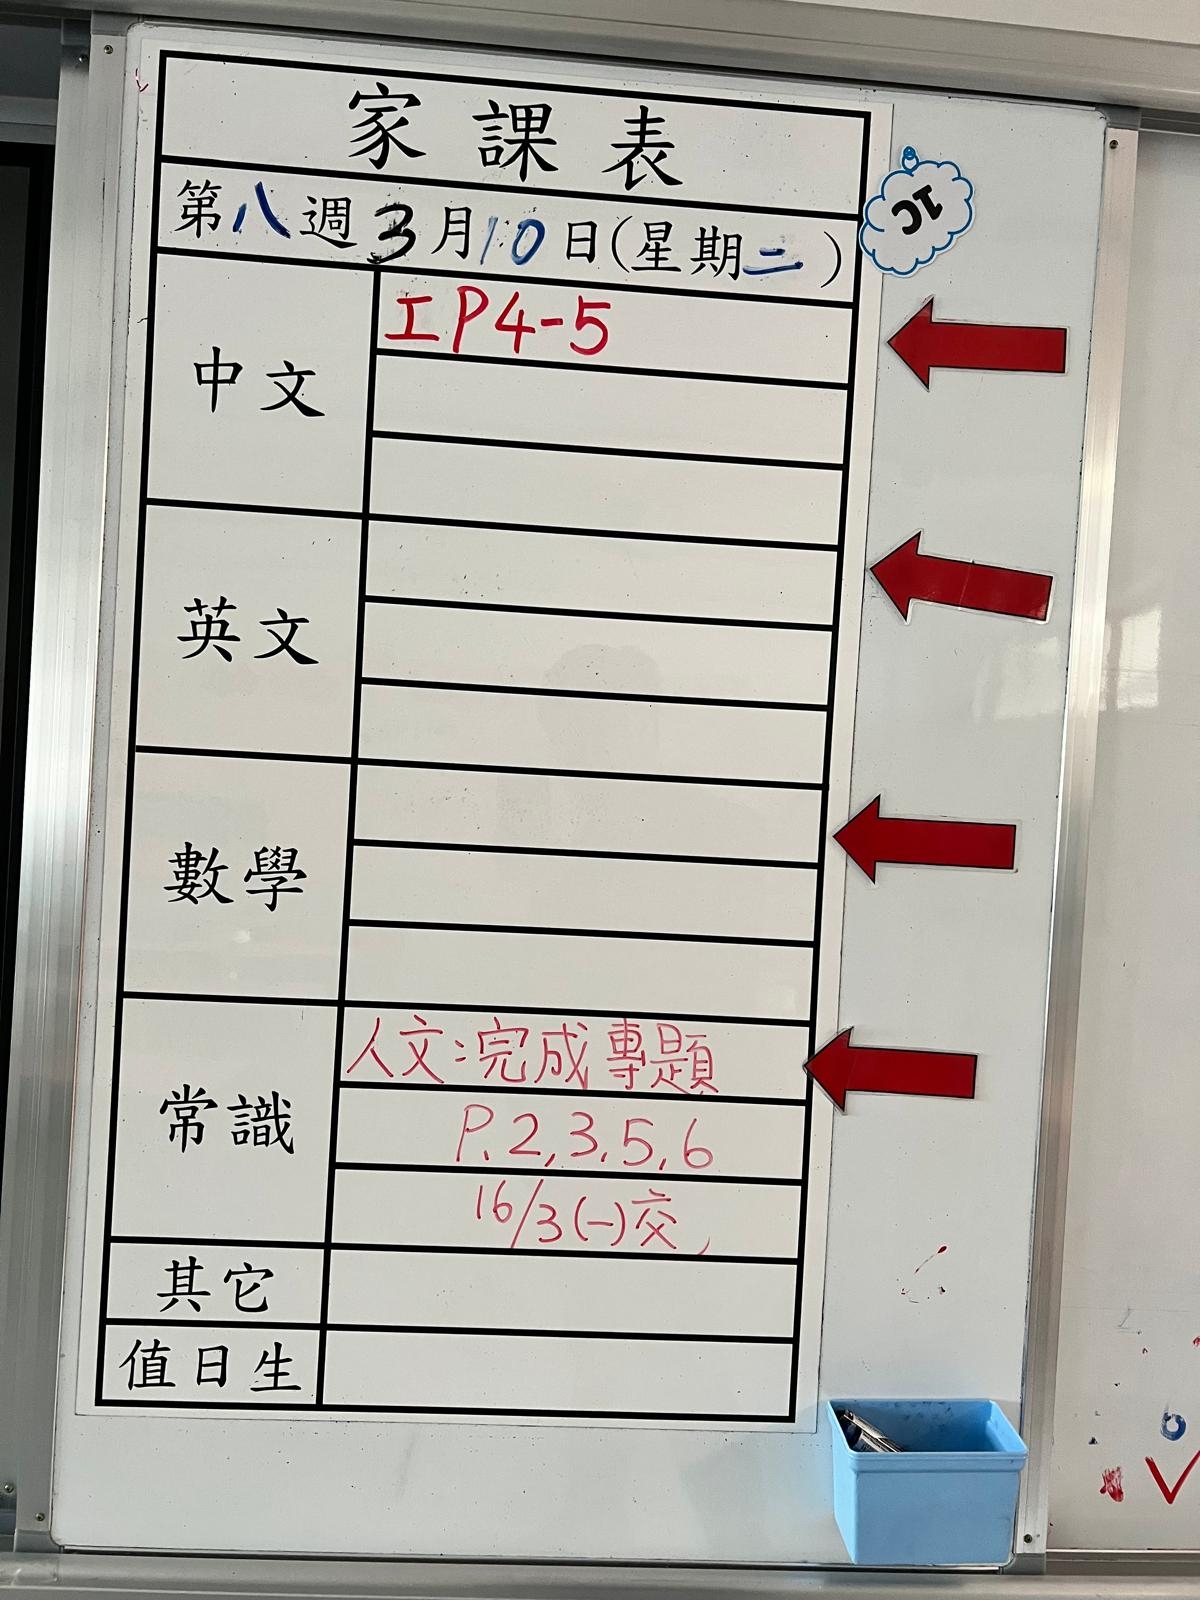 家課表
1C
第八週3月10日(星期二)
中文
工P4-5
英文
數學
常識
人文:完成專題
P.2,3,5,6
16/3(一)交
其它
值日生